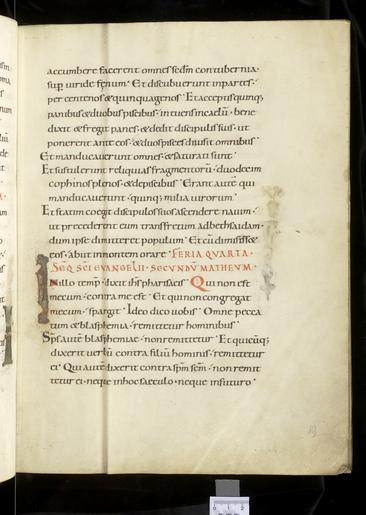 accumbere facerent omnes secdm contubernia·
sup uiride fęnum· Et discubuerunt in partes·
per centenos & quinquagenos· Et acceptis quinq;
panibus & duobus piscibus· intuens in caelū· bene
dixit & fregit panes· & dedit discipulis suis· ut
ponerent ante eos· & duos pisces diuisit omnibus
Et manducauerunt omnes· & saturati sunt·
Et sustulerunt reliquias fragmentorū· duodecim
cophinos plenos· & de piscibus· Erant autē qui
manducauerunt· quinq; milia uirorum·
Et statim coegit discipulos suos ascendere nauim·
ut praecederent eum trans fretum ad bethsaidam·
dum ipse dimitteret populum· Et cū dimisiss&
eos· abiit in montem orare· FERIA QUARTA·
SEQ SCI EUANGELII· SECUNDU MATHEUM·
In illo temp· dixit ihs pharisaeis· Qui non est
mecum· contra me est· Et qui non congregat
mecum· spargit· Ideo dico uobis· Omne pecca
tum & blasphemia· remittetur hominibus·
Sps autē blasphemiae· non remittetur· Et quicūq;
dixerit uerbū contra filiū hominis· remittetur
ei· Qui autē dixerit contra spm scm· non remit
tetur ei· neque in hoc saeculo· neque in futuro·